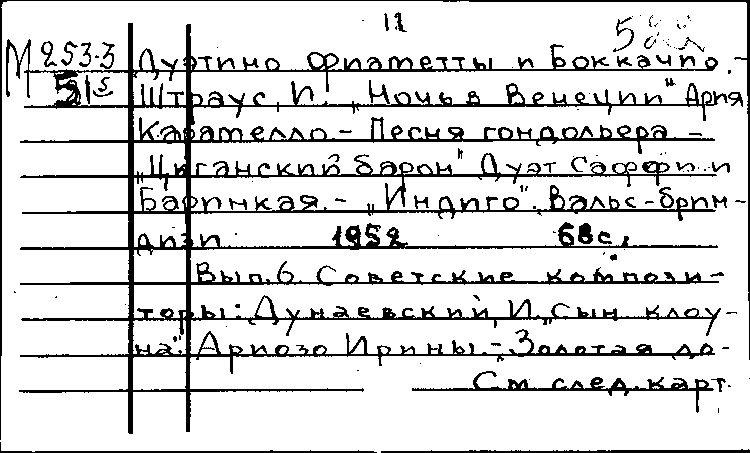 11
522
М 253-3 Дуэтино Фиаметты и Боккаччо.-
51 Штраус, И. „Ночь в Венеции" Ария
Карамелло.- Песня гондольера.-
„Цыганский барон" Дуэт Саффи и
Баринкая.- „Индиго". Вальс-брин-
дизи 1952 68с.
Вып. 6. Советские компози-
торы: Дунаевский, И. „Сын клоу-
на". Ариозо Ирины.- „Золотая до-
См. след. карт.